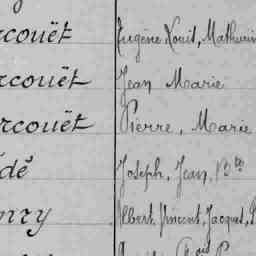 rcouët Eugène Louis, Mathurin
rcouët Jean Marie
rcouët Pierre, Marie
dé Joseph, Jean, Bte
nry Albert, Vincent, Jacques, P